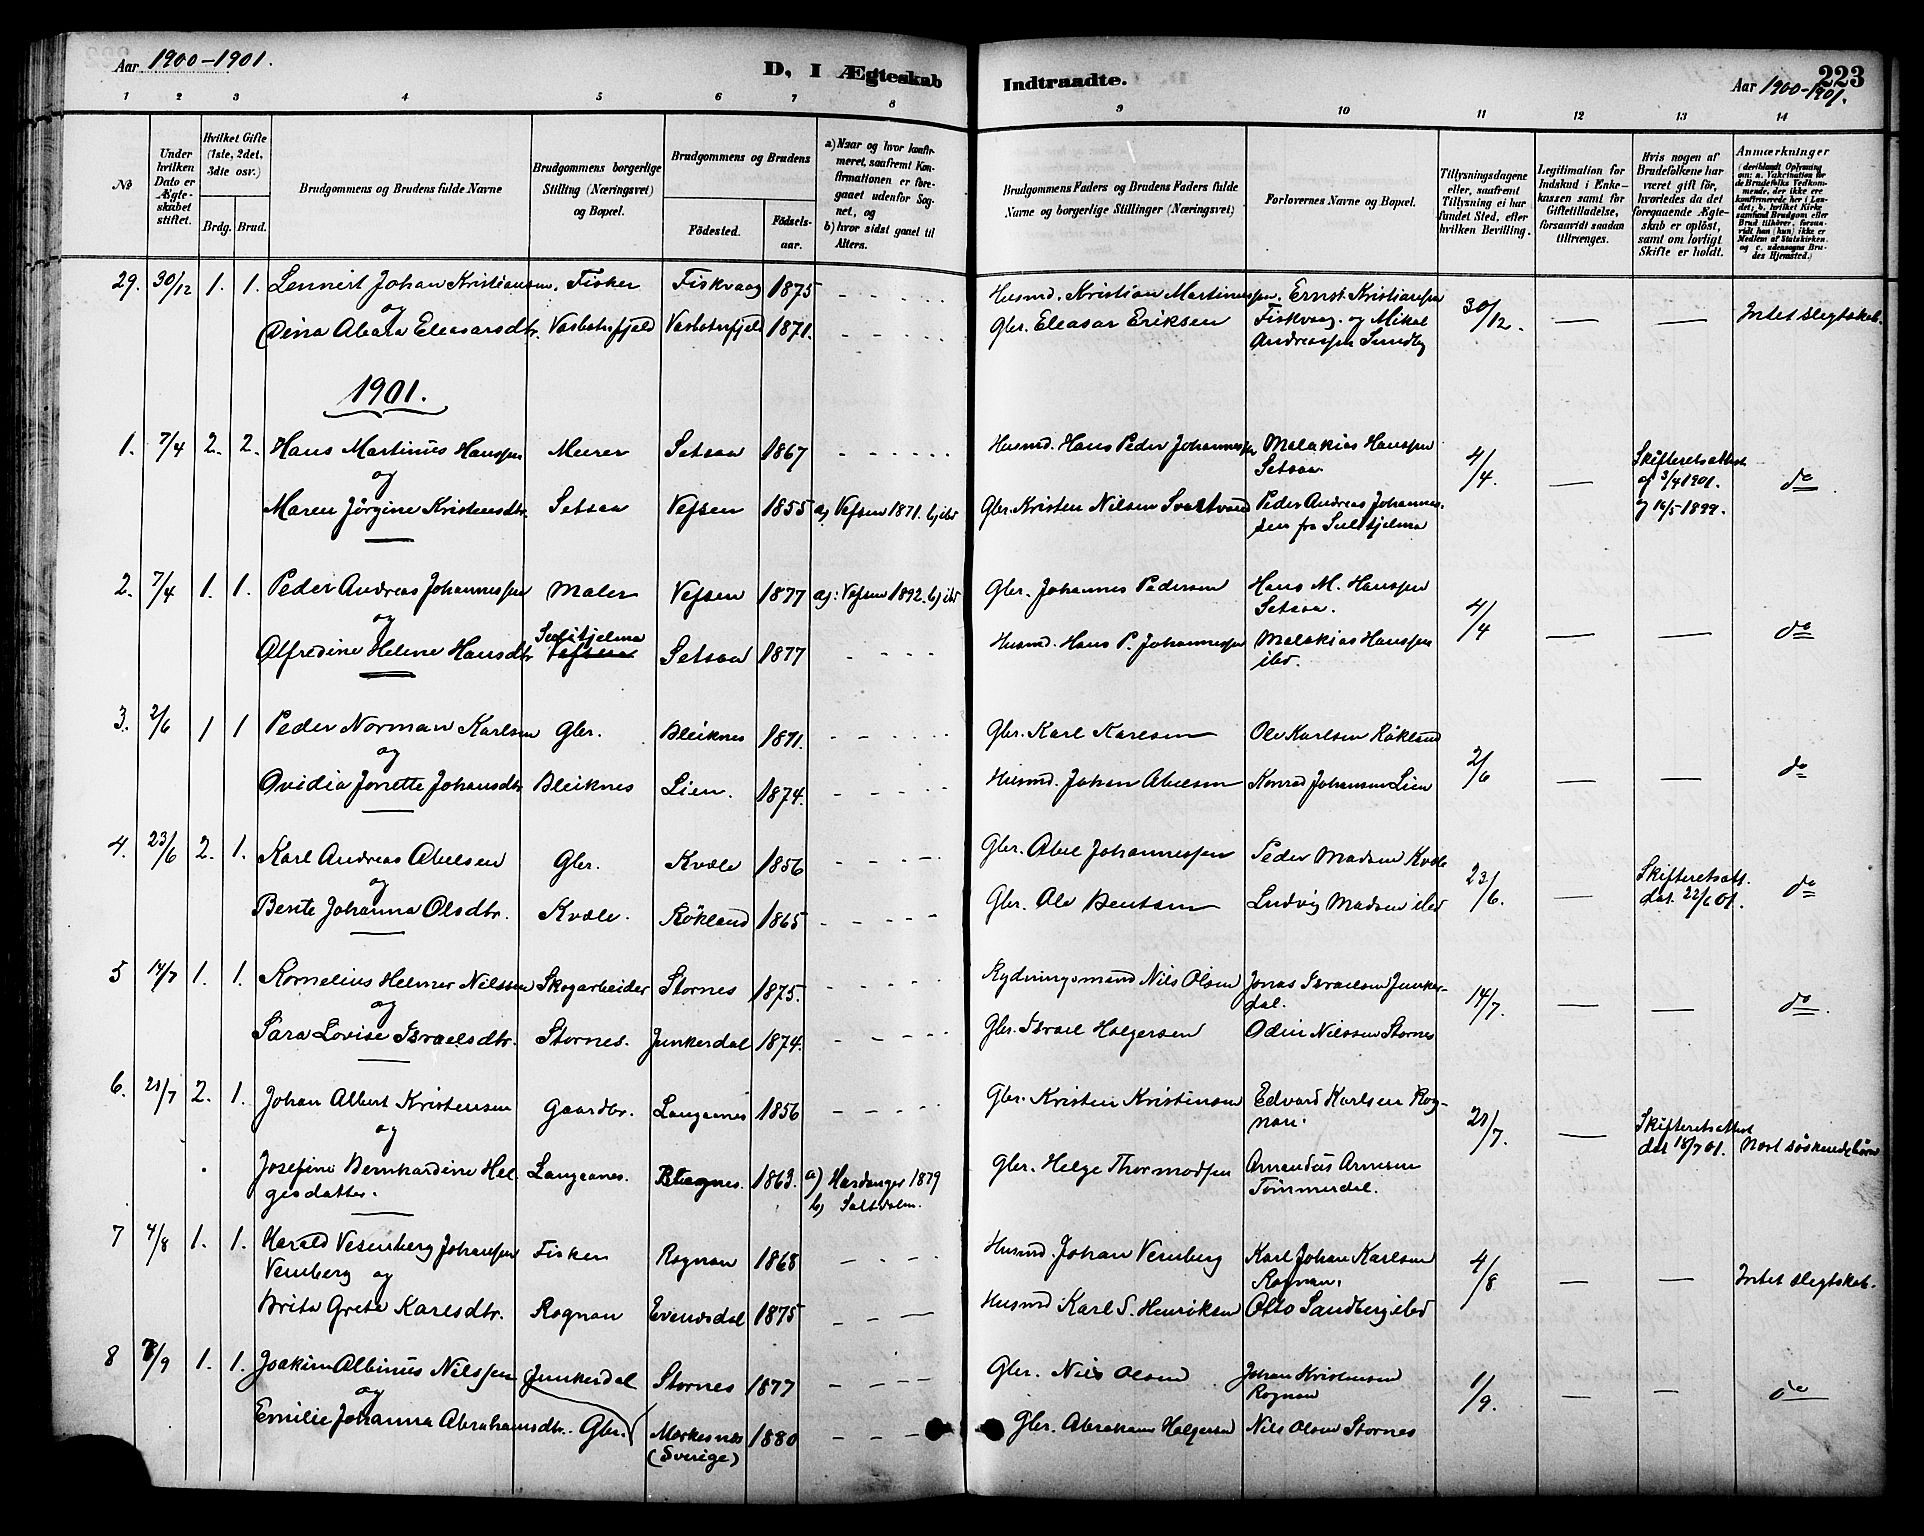 Aar 1900-1901.
D, I Ægteskab Indtraadte.
223
Aar 1900-1901.
1 2 3 4 5 6 7 8 9 10 11 12 13 14
No
Under hvilken Dato er Ægteskabet stiftet.
Hvilket Gifte (1ste, 2det, 3die osv.)
Brdg. Brud.
Brudgommens og Brudens fulde Navne
Brudgommens borgerlige Stilling (Næringsvei) og Bopæl.
Brudgommens og Brudens
Fødested. Fødselsaar.
a) Naar og hvor konfirmeret, saafremt Konfirmationen er foregaaet udenfor Sognet, og
b) hvor sidst gaaet til Alters.
Brudgommens Faders og Brudens Faders fulde Navne og borgerlige Stillinger (Næringsvei)
Forlovernes Navne og Bopæl.
Tillysningsdagene eller, saafremt Tillysning ei har fundet Sted, efter hvilken Bevilling.
Legitimation for Indskud i Enkekassen samt for Giftetilladelse, forsaavidt saadan tiltrænges.
Hvis nogen af Brudefolkene har været gift før, hvorledes da det foregaaende Ægteskab er opløst, samt om lovligt Skifte er holdt.
Anmærkninger
29. 30/12 1. 1. Lennert Johan Kristiansen. Fisker Fiskvaag 1875 Husmd. Kristian Martinussen. Ernst Kristiansen
og
Dina Abara Eleasarsdtr. Vasbotnfjeld Vasbotnfjeld 1871. Gbr. Eleasar Eriksen Fiskvaag. og Mikal Andreassen Sundby 30/12. Intet slegtskab.
1901.
1. 7/4 2. 2. Hans Martinus Hanssen Murer Setsaa 1867 Husmd. Hans Peder Johannessen Malakias Hanssen Setsaa 4/4. Skifteretsattest af 3/4 1901. og 16/5 1899. do
og
Maren Jørgine Kristensdtr. Setsaa Vefsen 1855 a) Vefsen 1871. b) ibd Gbr. Kristen Nilsen Svartvand Peder Andreas Johannessen fra Sulitjelma
2. 7/4 1. 1. Peder Andreas Johannessen Maler Vefsen 1877 a): Vefsen 1892. b) ibd Gbr. Johannes Pedersen Hans M. Hanssen Setsaa. 4/4 do
og
Alfredine Helene Hansdtr Sulitjelma Vefsen Setsaa 1877 Husmd. Hans P. Johannessen Malakias Hanssen ibd.
3. 2/6 1 1 Peder Norman Karlsen Gbr. Bleiknes 1871. Gbr. Karl Karlsen Ole Karlsen Røkland 2/6 do
og
Ovidia Jonette Johansdtr Bleiknes Lien. 1874. Husmd. Johan Abelsen Konrad Johansen Lien
4. 23/6 2. 1. Karl Andreas Abelsen Gbr. Kvæle 1856 Gbr. Abel Johannessen Peder Madsen Kvæle 23/6. Skifteretsatt. dat. 22/6 01. do
og
Bente Johanna Olsdtr. Kvæle. Røkland 1865 Gbr. Ole Bentsen Ludvig Madsen ibd
5 14/7 1. 1. Kornelius Helmer Nilssen Skogarbeider Stornes 1875. Rydningsmand Nils Olsen Jonas Israelsen Junkerdal. 14/7. do
og
Sara Lovise Israelsdtr. Stornes. Junkerdal 1874. Gbr. Israel Holgersen Odin Nilssen Stornes
6. 21/7 2. 1. Johan Albert Kristensen Gaardbr. Langanes 1856 Gbr. Kristen Kristensen Edvard Karlsen Rognan. 21/7. Skifteretsattest dat 18/7 01. Nært søskendebørn
og
Josefine Bernhardine Helgesdatter. Langanes. 1863. a) Hardanger 1879 b) Saltdalen. Gbr. Helge Thormodsen Amandus Arnesen Tømmerdal.
7 4/8 1. 1. Harald Vesenberg Johansen Fisker Rognan 1868 Husmd. Johan Vensberg Karl Johan Karlsen Rognan. 4/8 Intet slegtskab.
Vensberg og
Brita Greta Karlsdtr. Rognan Evensdal 1875 Husmd Karl S. Henriksen Otto Sandberg ibd
8 1/9 1. 1. Joakim Albinus Nilssen Junkerdal Stornes 1877 Gbr. Nils Olsen Johan Kristensen Rognan 1/9. do
og
Emilie Johanna Abrahamsdtr. Gbr. Mørkesnes (Sverige) 1880 Gbr. Abraham Holgersen Nils Olsen Stornes